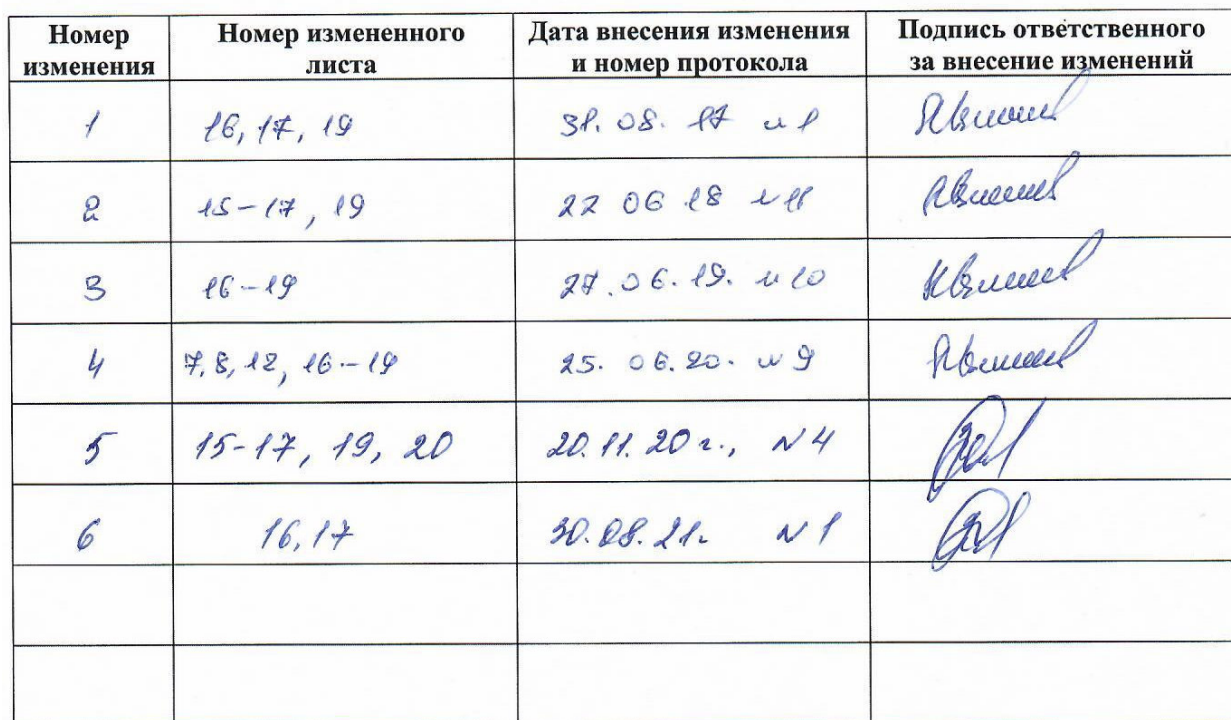 Номер изменения | Номер измененного листа | Дата внесения изменения и номер протокола | Подпись ответственного за внесение изменений
1 | 16, 17, 19 | 31.08.17 №1
2 | 15-17, 19 | 22 06 18 №11
3 | 16-19 | 27.06.19. №10
4 | 7, 8, 12, 16-19 | 25.06.20. №9
5 | 15-17, 19, 20 | 20.11.20 г., №4
6 | 16, 17 | 30.08.21г. №1